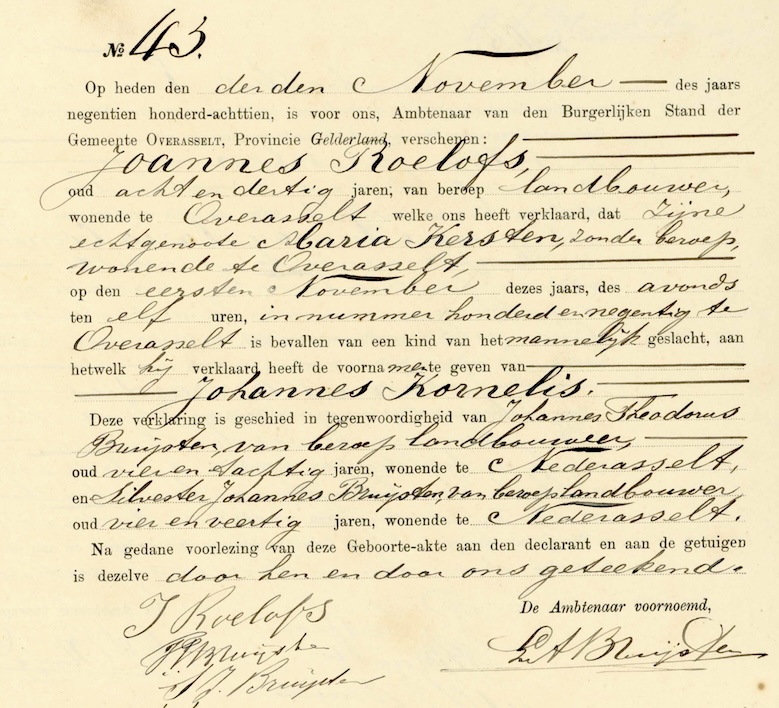 № 43.
Op heden den derden November — des jaars
negentien honderd-achttien, is voor ons, Ambtenaar van den Burgerlijken Stand der
Gemeente OVERASSELT, Provincie Gelderland, verschenen:
Joannes Roelofs,
oud acht en dertig jaren, van beroep landbouwer,
wonende te Overasselt welke ons heeft verklaard, dat zijne
echtgenoote Maria Kersten, zonder beroep,
wonende te Overasselt,
op den eersten November dezes jaars, des avonds
ten elf uren, in nummer honderd en negentig te
Overasselt is bevallen van een kind van het mannelijk geslacht, aan
hetwelk hij verklaard heeft de voornamente geven van
Johannes Kornelis.
Deze verklaring is geschied in tegenwoordigheid van Johannes Theodorus
Bruijsten, van beroep landbouwer,
oud vier en dachtig jaren, wonende te Nederasselt,
en Silvester Johannes Bruijsten, van beroep landbouwer
oud vier en veertig jaren, wonende te Nederasselt.
Na gedane voorlezing van deze Geboorte-akte aan den declarant en aan de getuigen
is dezelve door hen en door ons geteekend.
De Ambtenaar voornoemd,
J Roelofs
Bruijsten
S J. Bruijsten
Bruijsten